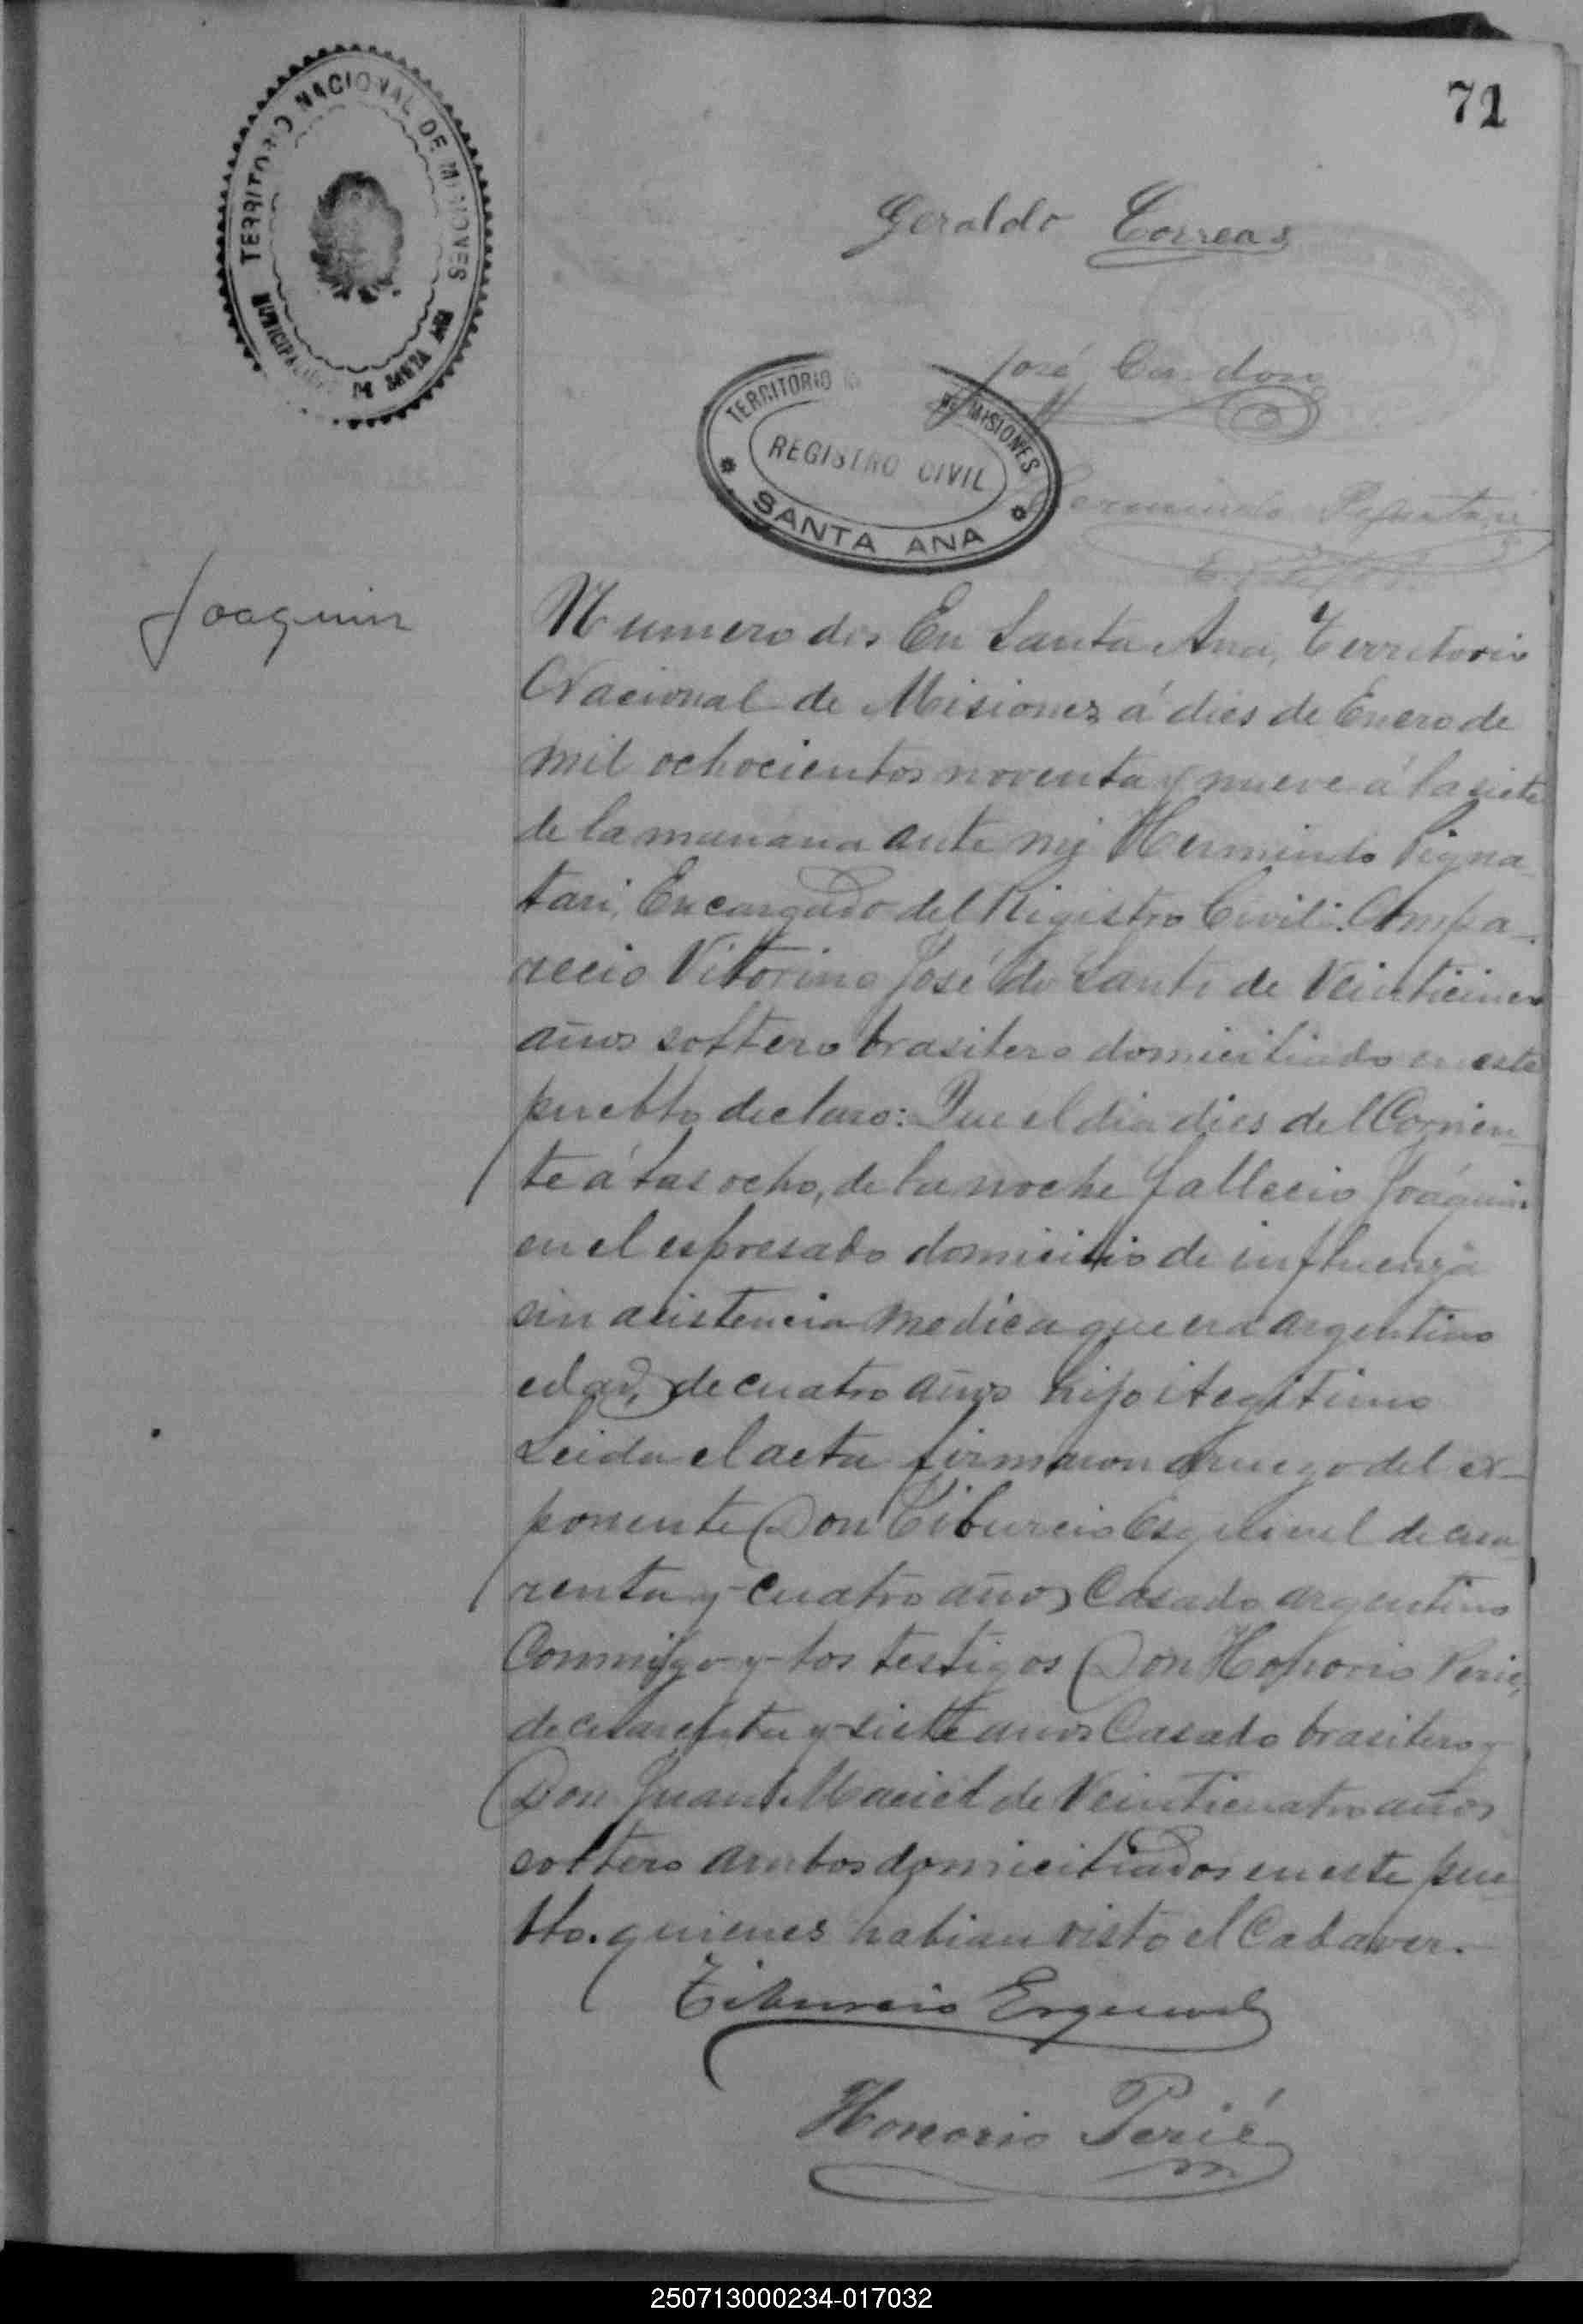 71
TERRITORIO NACIONAL DE MISIONES
MUNICIPALIDAD DE SANTA ANA
Geraldo Correas
José Cardoso
TERRITORIO DE MISIONES
REGISTRO CIVIL
SANTA ANA
Joaquin
Numero dos En Santa Ana, Territorio
Nacional de Misiones á dies de Enero de
mil ochocientos noventa y nueve á la siete
de la manana ante mi Hermindo Pigna
tari, Encargado del Registro Civil: Compa-
recio Vitorino José do Santo de Veinticinco
años soltero brasilero domiciliado en este
pueblo declaro: Que el dia dies del Corrien
te á las ocho, de la noche fallecio Joáquin
en el espresado domicilio de influenza
sin asistencia medica que era argentino
edad, de cuatro años hijo ilegitimo
Leida el acta firmaron a ruego del ex-
ponente Don Tiburcio Esquivel de cua
renta y cuatro años Casado argentino
Conmigo y los testigos Don Honorio Perié,
de cuarenta y siete anos Casado brasilero y
Don Juan Maciel de Veinticuatro años
soltero ambos domiciliados en este pue
blo. quienes habian visto el Cadaver.
Tiburcio Esquivel
Honorio Perié
250713000234-017032